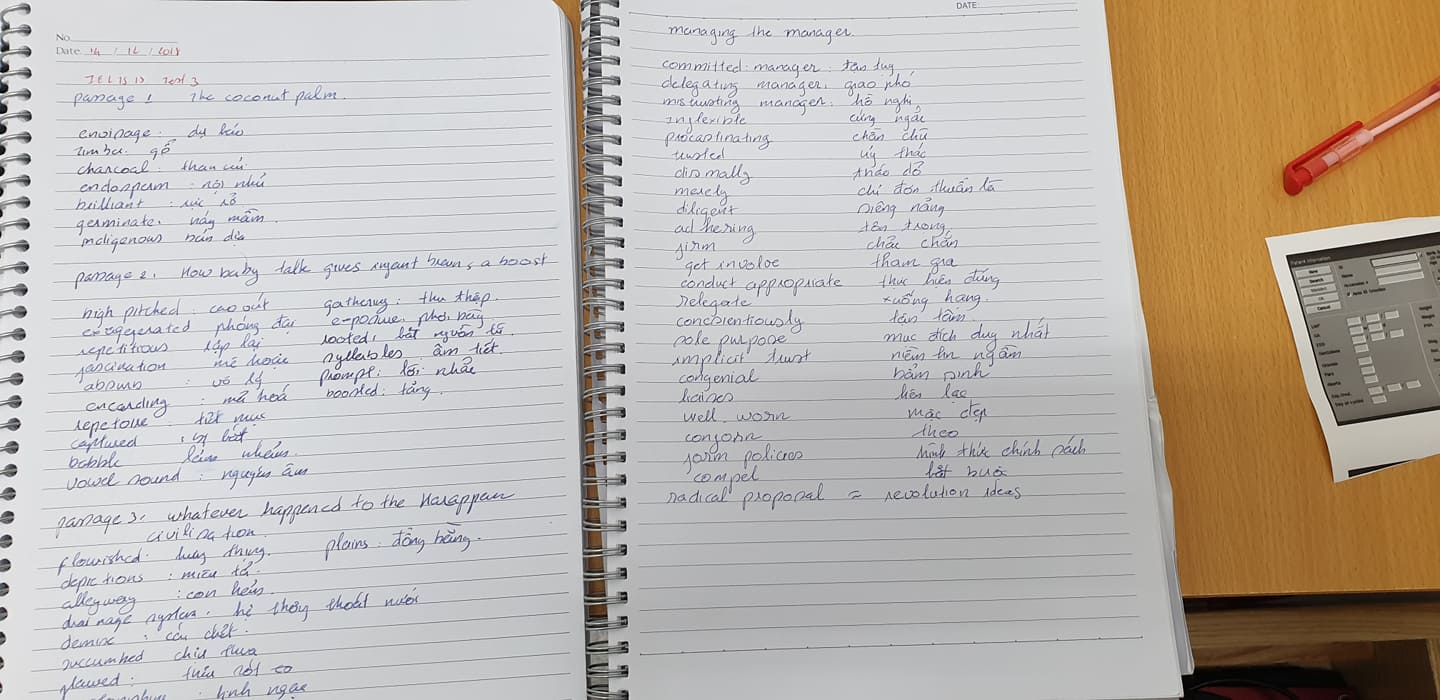 No.
Date 14 / 12 / 2018
IELTS 13 Test 3
passage 1 The coconut palm.
envisage : dự báo
timber : gỗ
charcoal : than củi
endosperm : nội nhũ
brilliant : rực rỡ
germinate : nảy mầm
indigenous bản địa
passage 2 : How baby talk gives infant brains a boost
high pitched : cao vút gathering : thu thập.
exaggerated phóng đại exposure, phơi bày
repetitious lặp lại rooted, bắt nguồn từ
fascination mê hoặc syllables âm tiết.
absurd : vô lý Prompt : lời nhắc
encoding : mã hoá boosted : tăng.
repetoire : tiết mục
captured : bị bắt
babble lảm nhảm.
vowel sound : nguyên âm
passage 3, whatever happened to the Harappan
civilisation.
flourished : hưng thịnh. plains : đồng bằng.
depictions : miêu tả.
alleyway : con hẻm.
drainage system : hệ thống thoát nước
demise : cái chết.
succumbed chịu thua
flawed : thiếu sót
: kinh ngạc
DATE:
managing the manager.
committed : manager : tận tụy
delegating manager, giao phó
mistrusting manager : hồ nghi
inflexible cứng ngắc
procastinating chần chừ
trusted ủy thác
dismally tháo dỡ
merely chỉ đơn thuần là
diligent siêng năng
adhering tôn trọng
firm chắc chắn
get involve tham gia
conduct appropriate thực hiện đúng
relegate xuống hạng.
concsientiously tận tâm.
sole purpose mục đích duy nhất
implicit trust niềm tin ngầm
congenial bẩm sinh
liaises liên lạc
well worn mặc đẹp
conform theo
form policies hình thức chính sách
compel bắt buộc
radical proposal = revolution ideas
Patient Information